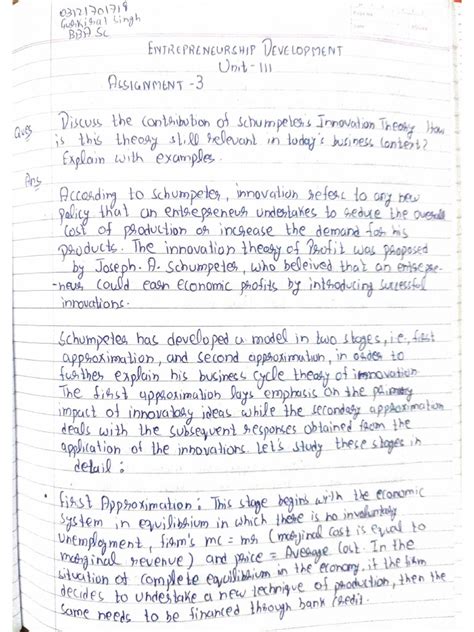 03121701718
Gurkirat Singh
BBA 5C
ENTREPRENEURSHIP DEVELOPMENT
Unit-III
ASSIGNMENT-3
Ques Discuss the contribution of Schumpeter's Innovation Theory. How
is this theory still relevant in today's business context?
Explain with examples.
Ans According to Schumpeter, innovation refers to any new
policy that an entrepreneur undertakes to reduce the overall
cost of production or increase the demand for his
products. The innovation theory of Profit was proposed
by Joseph. A. Schumpeter, who beleived that an entrepre-
-neur could earn economic profits by introducing successful
innovations.
Schumpeter has developed a model in two stages, i.e, first
approximation, and second approximation, in order to
further explain his business cycle theory of innovation
The first approximation lays emphasis on the primary
impact of innovatory ideas while the secondary approximation
deals with the subsequent responses obtained from the
application of the innovations. Let's study these stages in
detail:
• First Approximation: This stage begins with the economic
system in equilibrium in which there is no involuntary
unemployment, firm's mc = mr (marginal cost is equal to
marginal revenue) and price = Average Cost. In the
situation of complete equilibrium in the economy, if the firm
decides to undertake a new technique of production, then the
same needs to be financed through bank credit.